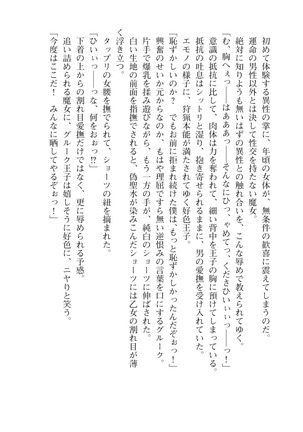 初めて体験する異性の掌に、年頃の女体が、無条件の歓喜に震えてしまうのだ。
運命の男性以外とは決して交合を持たない魔女。
絶対に知りようも無いはずの異性との触れ合いを、こんな辱めで教えられてゆく。
「む、胸へぇっ――はああぁっ――そんなにひっ、ゃめてっ、くださひいぃぃっ――っ！」
意識の抵抗に比して、肉体は力を奪われて、細い背中を王子の胸に預けてしまっている。
抵抗の吐息はシットリと湿り、抱き寄せられるままに、男の愛撫を受け入れていた。
エモノの様子に、狩猟本能が満たされてゆく好色王子。
「恥ずかしいのか？　でもお前に拒まれ続けた僕は、もっと恥ずかしかったんだぞぉっ！」
興奮のせいかからなのか、もはや理屈ですら無い逆恨みの言葉を口にするグルーク。
片手で爆乳を揉み遊びながら、もう一方の手が、純白のショーツに伸ばされた。
白い生地の前面を指撫でされると、偽聖水が染みこんだショーツには乙女の割れ目が薄
く浮き立つ。
「ひいぃっ――っな、何をおぉっ!?」
タップリの女腰を撫でられて、ショーツの紐を摘まれた。
下着の上からの割れ目愛撫だけではなく、更に辱められる予感。
追い詰められる魔女に、グルーク王子は嬉しそうに好色に、ニヤリと笑う。
「今度はここだ！　みんなに晒してやるぞぉっ！」